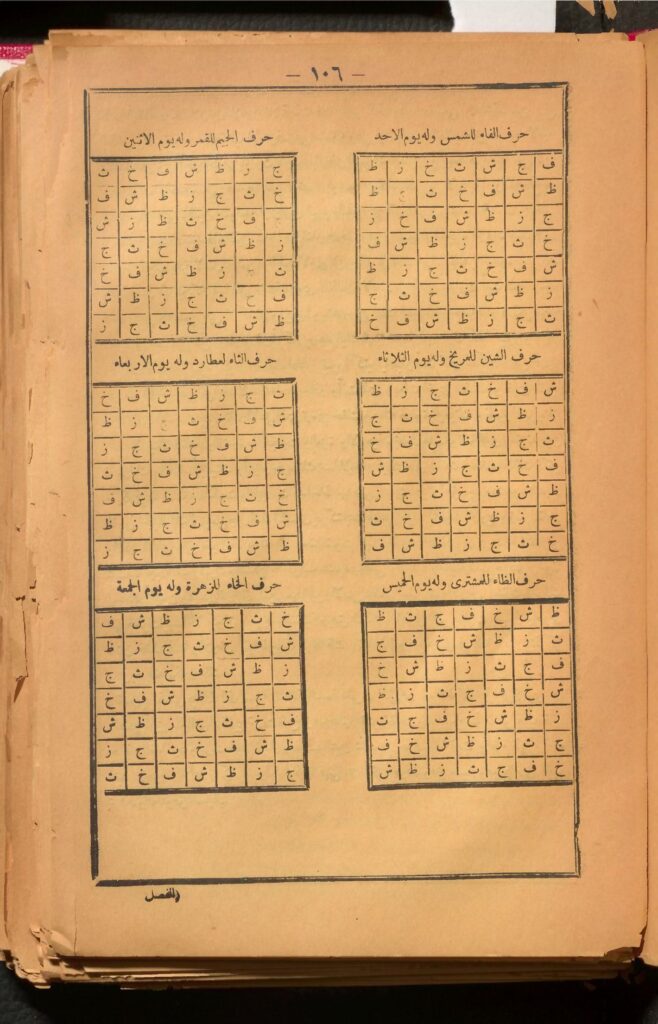 — ١٠٦ —
حرف الفاء للشمس وله يوم الاحد
ف ج ش ث خ ز ظ
ظ ش ف خ ث ج ظ
ج ز ظ ش ف خ ز
خ ث ج ز ظ ش ف
ش ف خ ث ج ز ظ
ز ظ ش ف خ ث ج
ث ج ز ظ ش ف خ
حرف الجيم للقمر وله يوم الاثنين
ج ز ظ ش ف خ ث
خ ث ج ز ظ ش ف
ج ف خ ث ظ ز ش
ز ظ ش ف خ ث ج
ث ج ز ظ ش ف خ
ف خ ث ج ز ظ ش
ظ ش ف خ ث ج ز
حرف الشين للمريخ وله يوم الثلاثاء
ش ف خ ث ج ز ظ
ز ظ ش ف خ ث ج
ث ج ز ظ ش ف خ
ف خ ث ج ز ظ ش
ظ ش ف خ ث ج ز
ج ز ظ ش ف خ ث
خ ث ج ز ظ ش ف
حرف الثاء لعطارد وله يوم الاربعاء
ث ج ز ظ ش ف خ
ش ف خ ث ج ز ظ
ظ ش ف خ ث ج ز
ج ز ظ ش ف خ ث
خ ث ج ز ظ ش ف
ش ف خ ث ج ز ظ
ظ ش ف خ ث ج ز
حرف الظاء للمشترى وله يوم الخميس
ظ ش خ ف ج ث ظ
ث ز ظ ش خ ف ج
ف ج ث ز ظ ش خ
ش خ ف ج ث ز ظ
ز ظ ش خ ف ج ث
ج ث ز ظ ش خ ف
خ ف ج ث ز ظ ش
حرف الخاء للزهرة وله يوم الجمعة
خ ث ج ز ظ ش ف
ش ف خ ث ج ز ظ
ز ظ ش ف خ ث ج
ث ج ز ظ ش ف خ
ف خ ث ج ز ظ ش
ظ ش ف خ ث ج ز
ج ز ظ ش ف خ ث